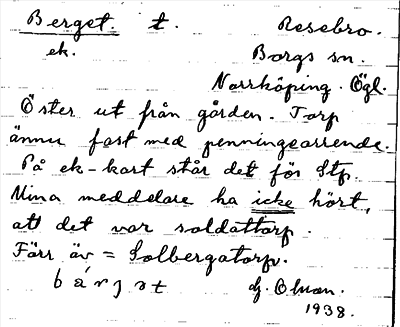 Berget. t. Resebro.
ek. Borgs sn.
Norrköping. Ögl.
Öster ut från gården. Torp
ännu fast med penningearrende.
På ek-kart står det för Stp.
Mina meddelare ha icke hört,
att det var soldattorp.
Förr äv = Solbergatorp.
bárjət dj. Olson.
1938.